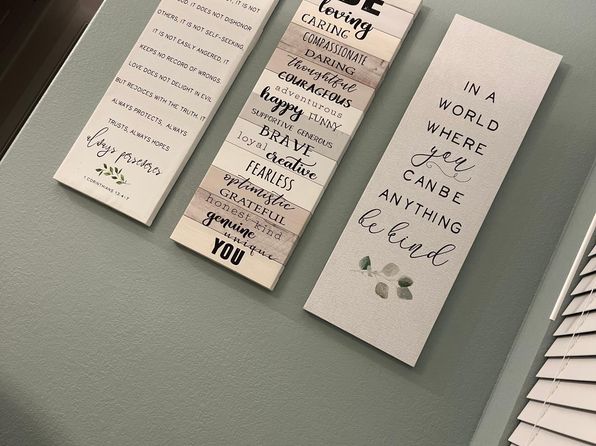 IT IS NOT
OUD. IT DOES NOT DISHONOR
OTHERS, IT IS NOT SELF-SEEKING,
IT IS NOT EASILY ANGERED, IT
KEEPS NO RECORD OF WRONGS.
LOVE DOES NOT DELIGHT IN EVIL
BUT REJOICES WITH THE TRUTH. IT
ALWAYS PROTECTS, ALWAYS
TRUSTS, ALWAYS HOPES
always perseveres
1 CORINTHIANS 13:4-7
BE
loving
CARING
COMPASSIONATE
DARING
thoughtful
COURAGEOUS
adventurous
happy FUNNY
SUPPORTIVE GENEROUS
BRAVE
loyal creative
FEARLESS
optimistic
GRATEFUL
honest kind
genuine
unique
YOU
IN A
WORLD
WHERE
you
CANBE
ANYTHING
be kind